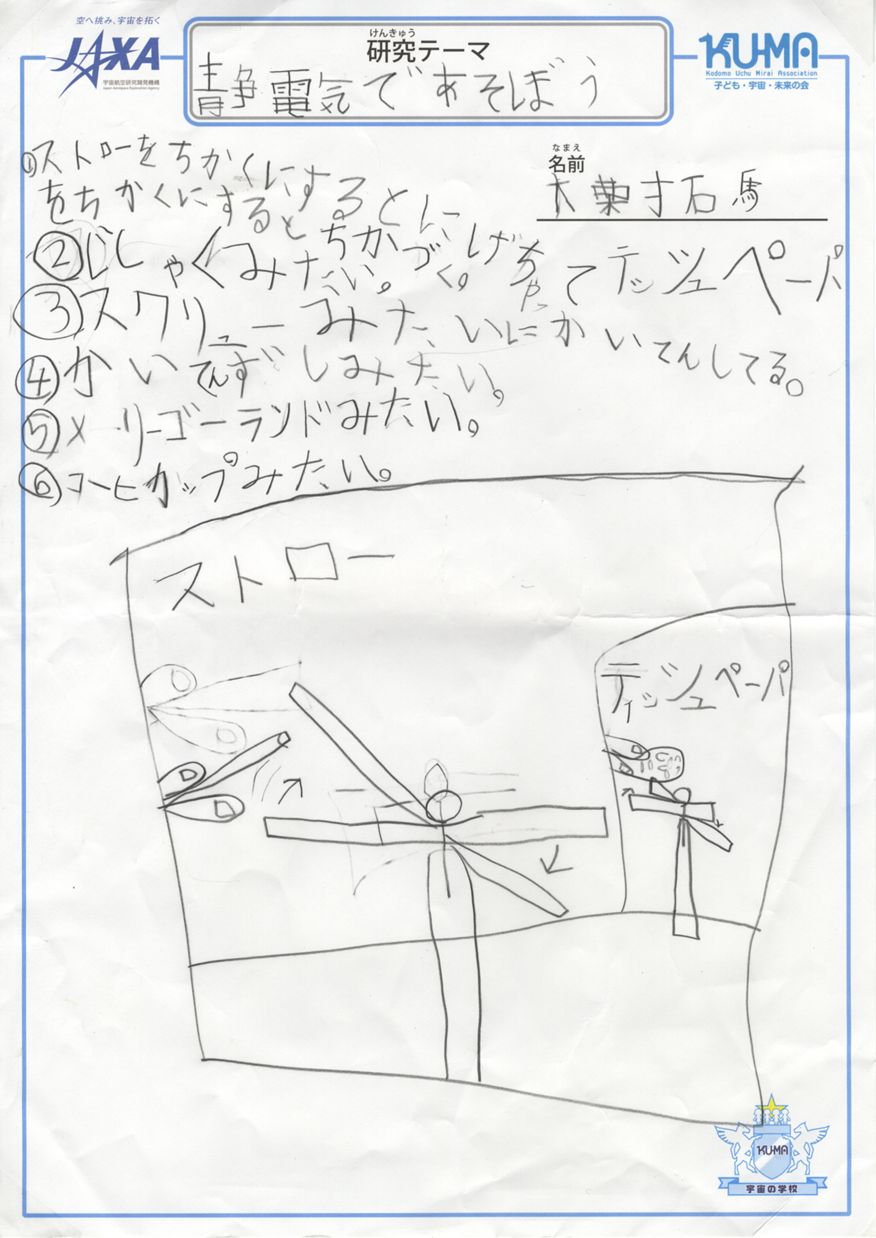 空へ挑み、宇宙を拓く
JAXA
宇宙航空研究開発機構
Japan Aerospace Exploration Agency
けんきゅう
研究テーマ
静電気であそぼう
KU-MA
Kodomo Uchu Mirai Association
子ども・宇宙・未来の会
なまえ
名前
①ストローをちかくにするとに
をちかくにずると
②じしゃくみたい。ちかづく。げちゃってテッシュペーパ
③スクリューみたいにかいてんしてる。
④かいてんずしみたい。
⑤メーリーゴーランドみたい。
⑥コーヒカップみたい。
ストロー
ティッシュペーパ
KU-MA
宇宙の学校